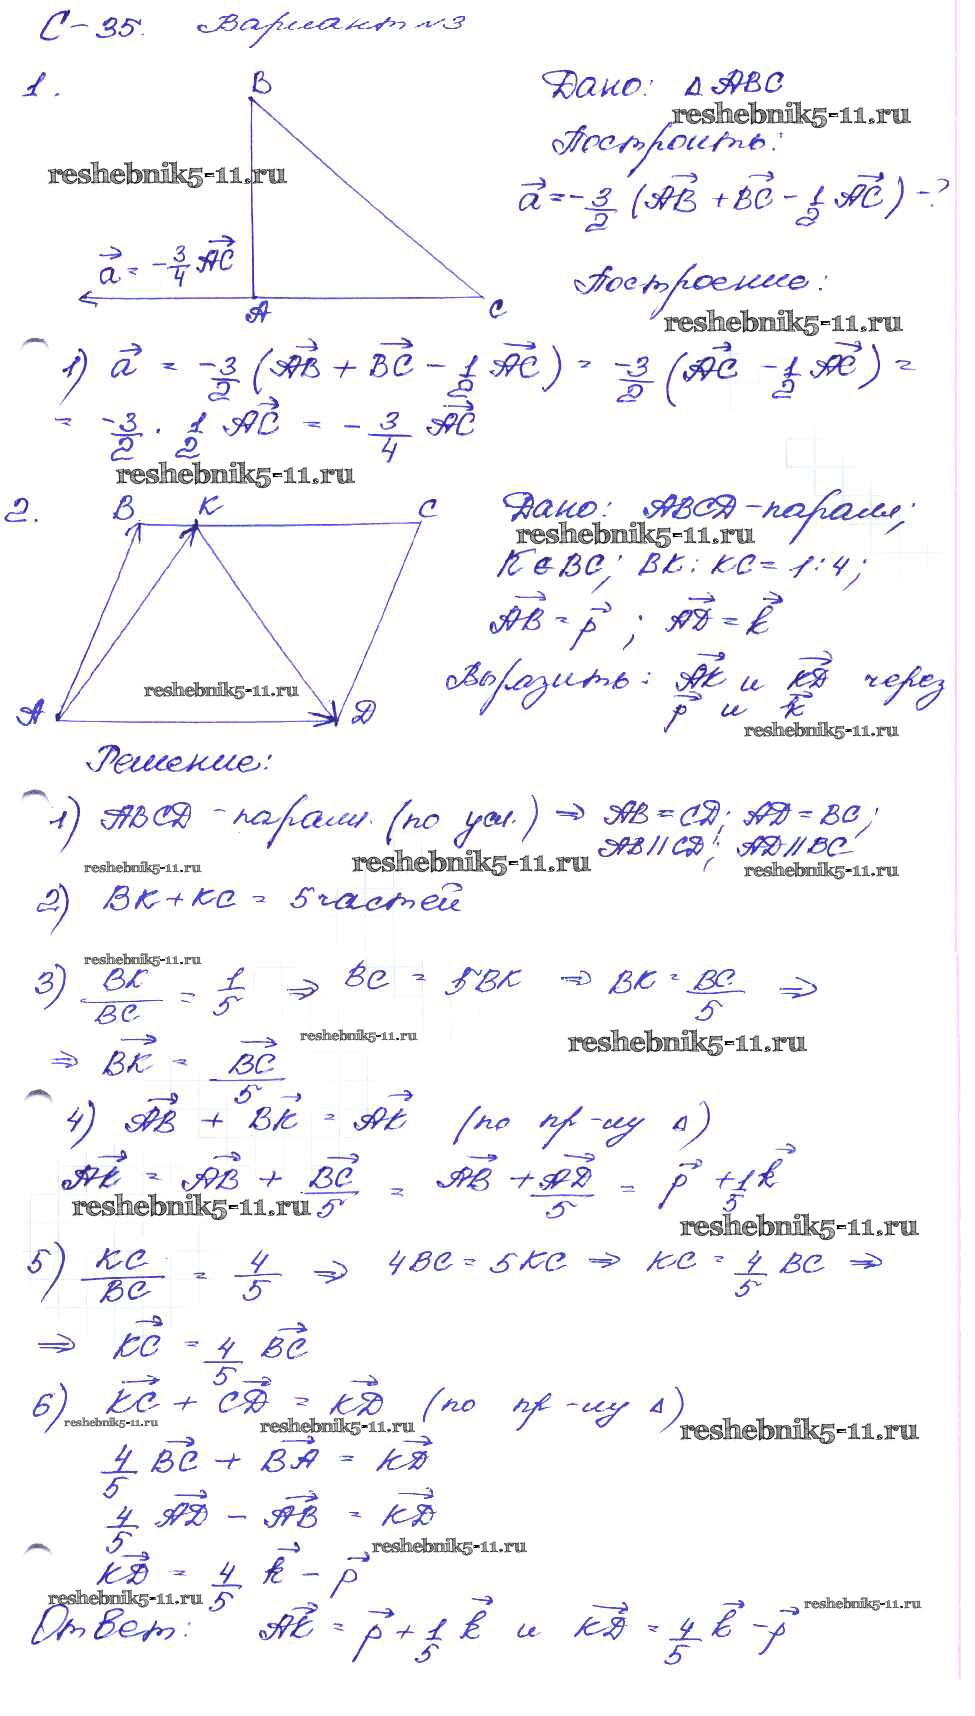 С-35. Вариант №3
1.
B
Дано: △ABC
reshebnik5-11.ru
Построить:
reshebnik5-11.ru
a⃗ = -3/2 (AB⃗ + BC⃗ - 1/2 AC⃗) -?
a⃗ = -3/4 AC⃗
A C
Построение:
reshebnik5-11.ru
1) a⃗ = -3/2 (AB⃗ + BC⃗ - 1/2 AC⃗) = -3/2 (AC⃗ - 1/2 AC⃗) =
= -3/2 · 1/2 AC⃗ = -3/4 AC⃗
reshebnik5-11.ru
2. B K C
Дано: ABCD - паралл;
reshebnik5-11.ru
K ∈ BC; BK : KC = 1 : 4;
AB⃗ = p⃗ ; AD⃗ = k⃗
Выразить: AK⃗ и KD⃗ через
p⃗ и k⃗
reshebnik5-11.ru
reshebnik5-11.ru
A D
Решение:
1) ABCD - паралл. (по усл.) ⇒ AB = CD; AD = BC;
AB || CD; AD || BC
reshebnik5-11.ru reshebnik5-11.ru reshebnik5-11.ru
2) BK + KC = 5 частей
reshebnik5-11.ru
3) BK/BC = 1/5 ⇒ BC = 5BK ⇒ BK = BC/5 ⇒
reshebnik5-11.ru reshebnik5-11.ru
⇒ BK⃗ = BC⃗/5
4) AB⃗ + BK⃗ = AK⃗ (по пр-лу △)
AK⃗ = AB⃗ + BC⃗/5 = AB⃗ + AD⃗/5 = p⃗ + 1/5 k⃗
reshebnik5-11.ru reshebnik5-11.ru
5) KC/BC = 4/5 ⇒ 4BC = 5KC ⇒ KC = 4/5 BC ⇒
⇒ KC⃗ = 4/5 BC⃗
6) KC⃗ + CD⃗ = KD⃗ (по пр-лу △)
reshebnik5-11.ru reshebnik5-11.ru reshebnik5-11.ru
4/5 BC⃗ + BA⃗ = KD⃗
4/5 AD⃗ - AB⃗ = KD⃗
reshebnik5-11.ru
KD⃗ = 4/5 k⃗ - p⃗
reshebnik5-11.ru reshebnik5-11.ru
Ответ: AK⃗ = p⃗ + 1/5 k⃗ и KD⃗ = 4/5 k⃗ - p⃗